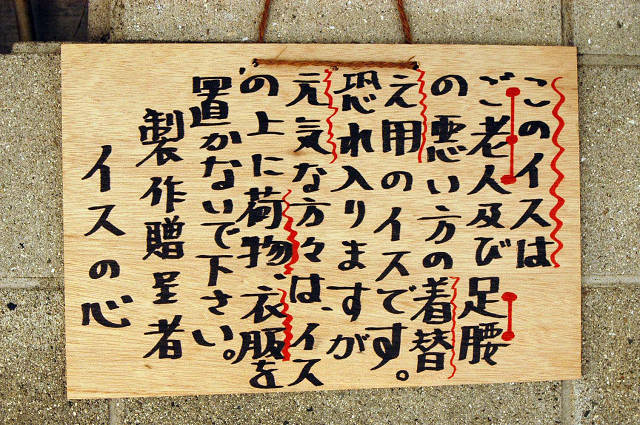 このイスは
ご老人及び足腰
の悪い方の着替
え用のイスです。
恐れ入りますが
元気な方々は、イス
の上に荷物、衣服を
置かないで下さい。
製作贈呈者
イスの心